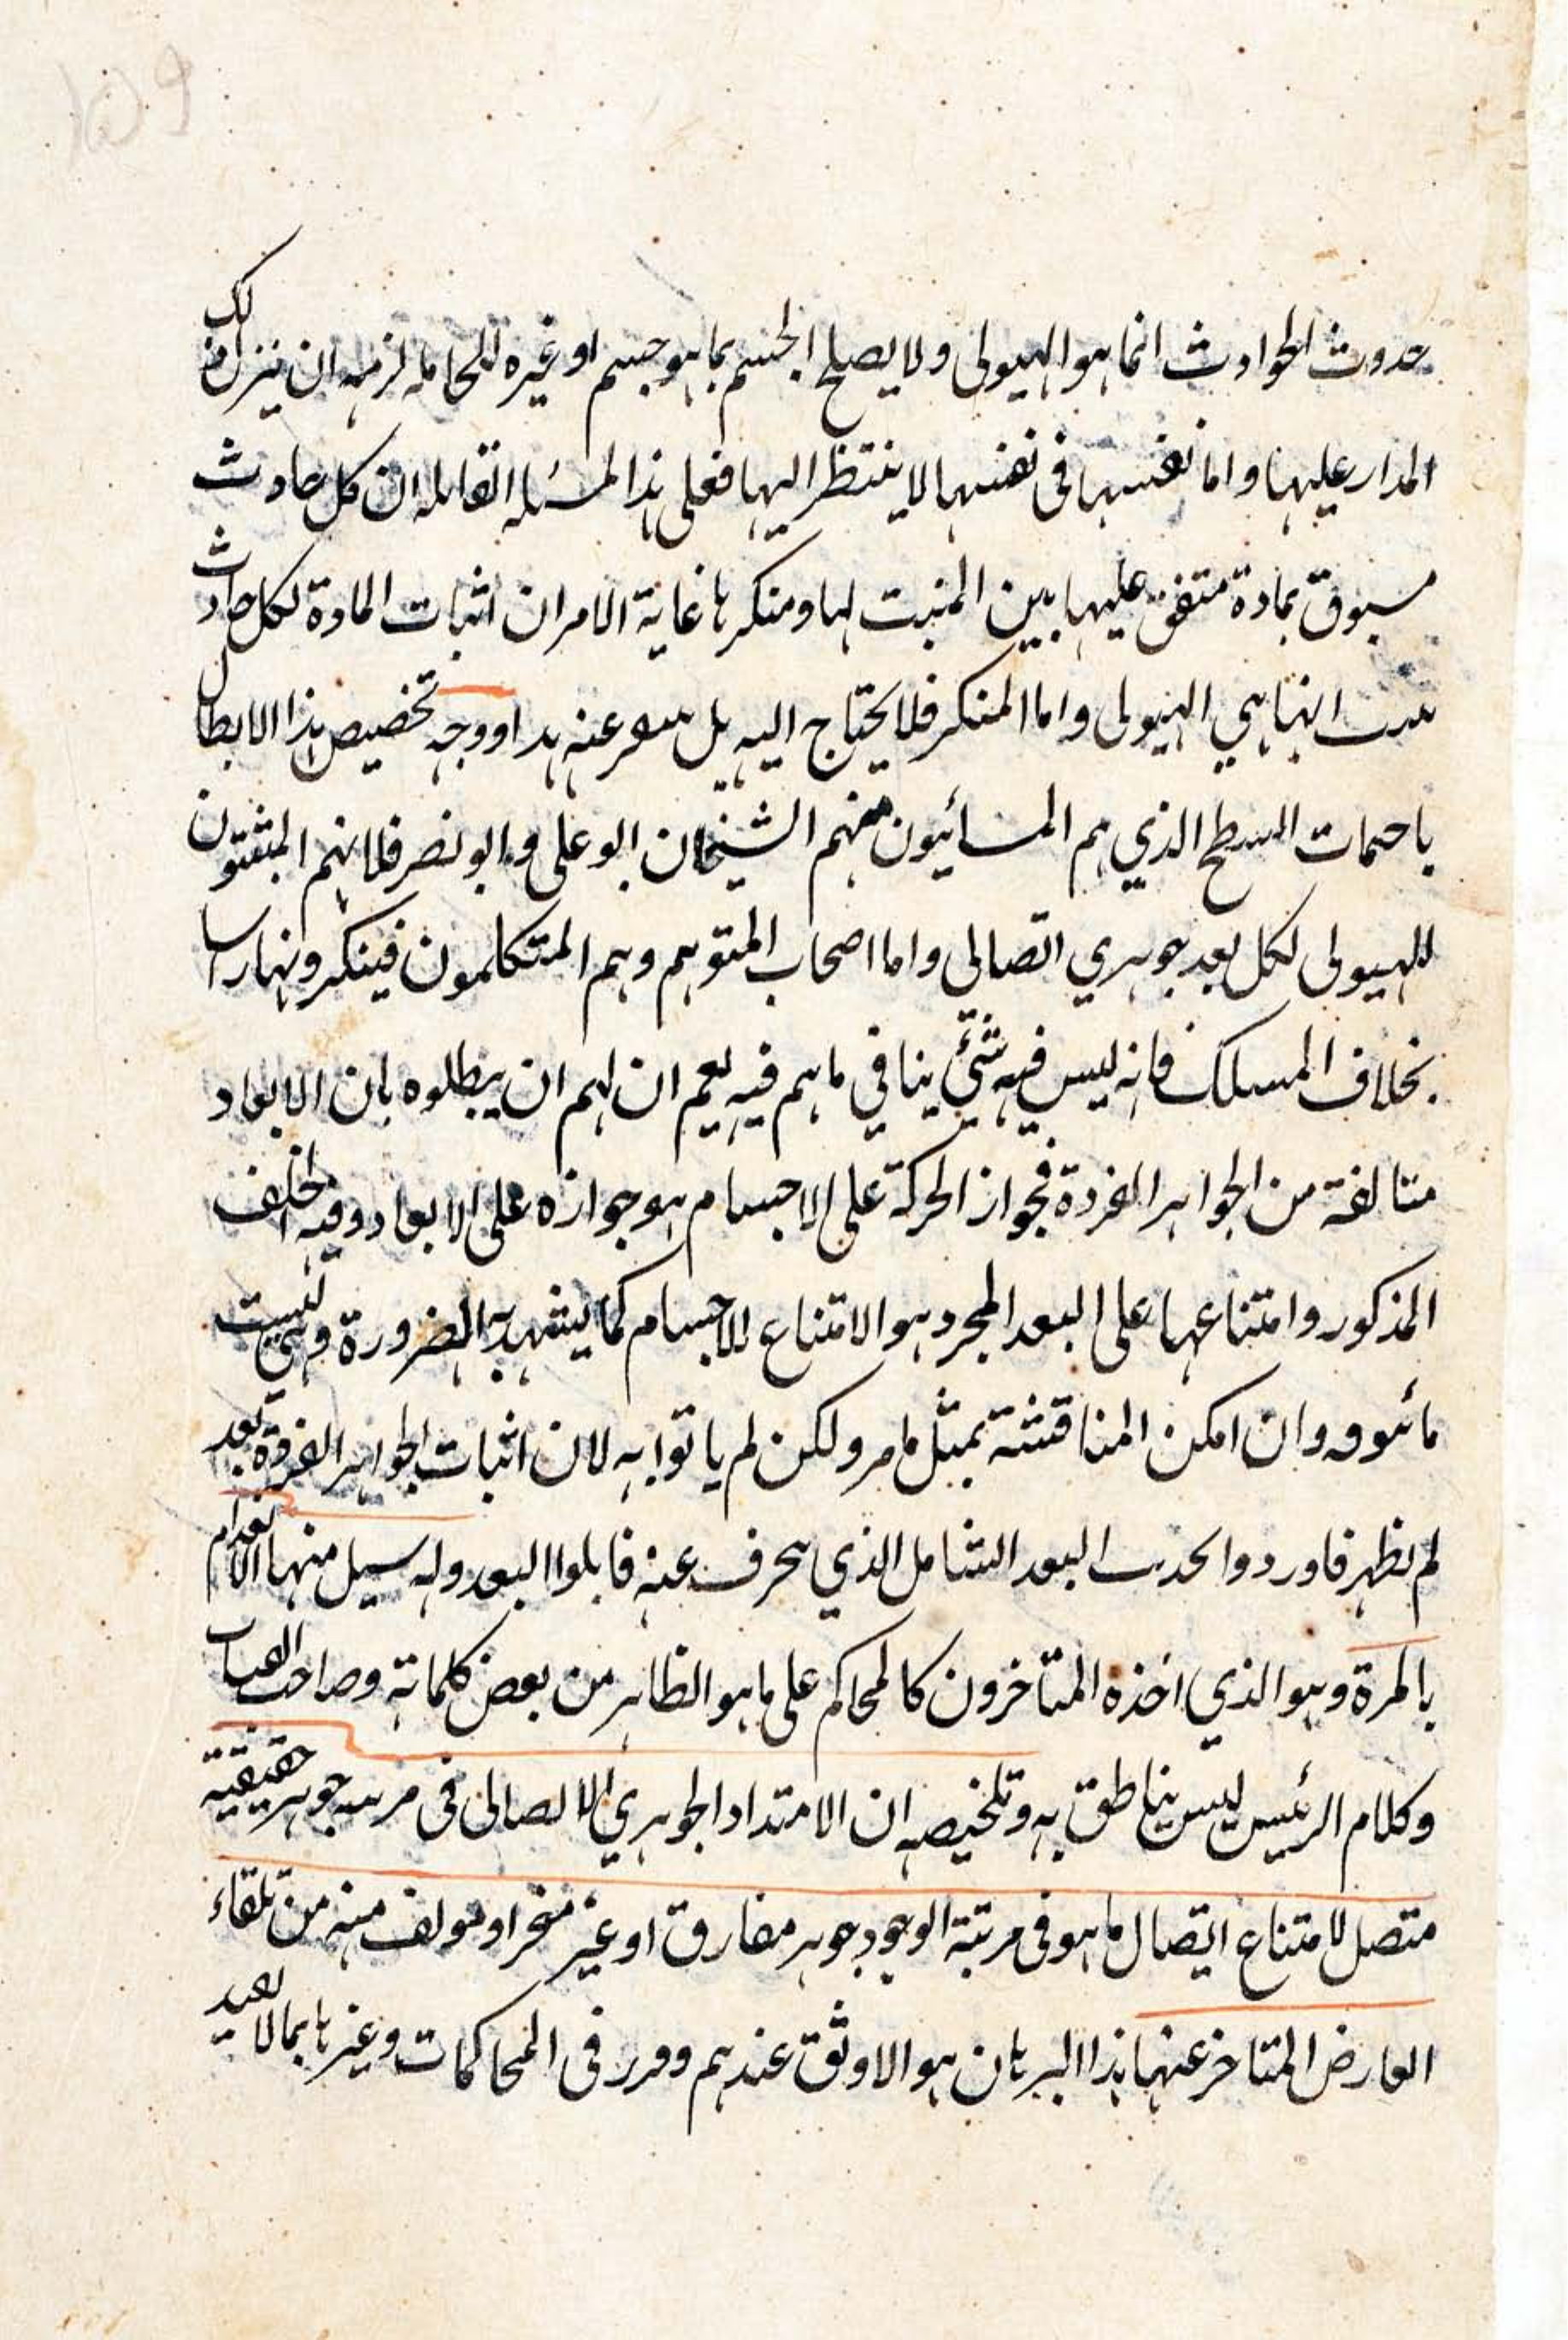 حدوث الحوادث انما هو الهيولى ولا يصلح الجسم بما هو جسم او غيره للحامله لزمه ان ينزل لك
المدار عليها واما نفسها فى نفسها لا ينتظر اليها فعلى هذا المسئله القائله ان كل حادث
مسبوق بمادة متفق عليها بين المثبت لها ومنكرها غاية الامر ان اثبات المادة لكل حادث
انها هي الهيولى واما المنكر فلا يحتاج اليه بل عنه ووجه تخصيص هذا الابطال
السطح الذي هم المشائيون منهم الشيخان ابو على وابو نصر فلانهم المثبتون
للهيولى لكل بعد جوهري اتصالى واما اصحاب المتوهم وهم المتكلمون فينكرونها راسا
بخلاف المسلك فانه ليس فيه شئ ينافي ما هم فيه نعم ان لهم ان يبطلوه بان الابعاد
متالفة من الجواهر الفردة فجواز الحركة على الاجسام هو جوازه على الابعاد وفيه الخلف
المذكور وامتناعها على البعد المجرد هو الامتناع للاجسام كما يشهد به الضرورة وهي ليست
وان امكن المناقشة بمثل ما مر ولكن لم ياتوا به لان اثبات الجواهر الفردة بعد
لم يظهر فاوردوا البعد الشامل الذي عنه البعد وله سبيل منها الانعدام
بالمرة وهو الذي اخذه المتاخرون كالمحاكم على ما هو الظاهر من بعض كلماته وصاحب
وكلام الرئيس ليس بناطق به وتلخيصه ان الامتداد الجوهري الاتصالى فى جوهر حقيقيه
متصل لامتناع اتصال ما هو فى مرتبة الوجود جوهر مفارق او غير او مولف منه من تلقاء
العارض المتاخر عنها هذا البرهان هو الاوثق عندهم وقرر فى المحاكمات وغيرها بما لا بعيد